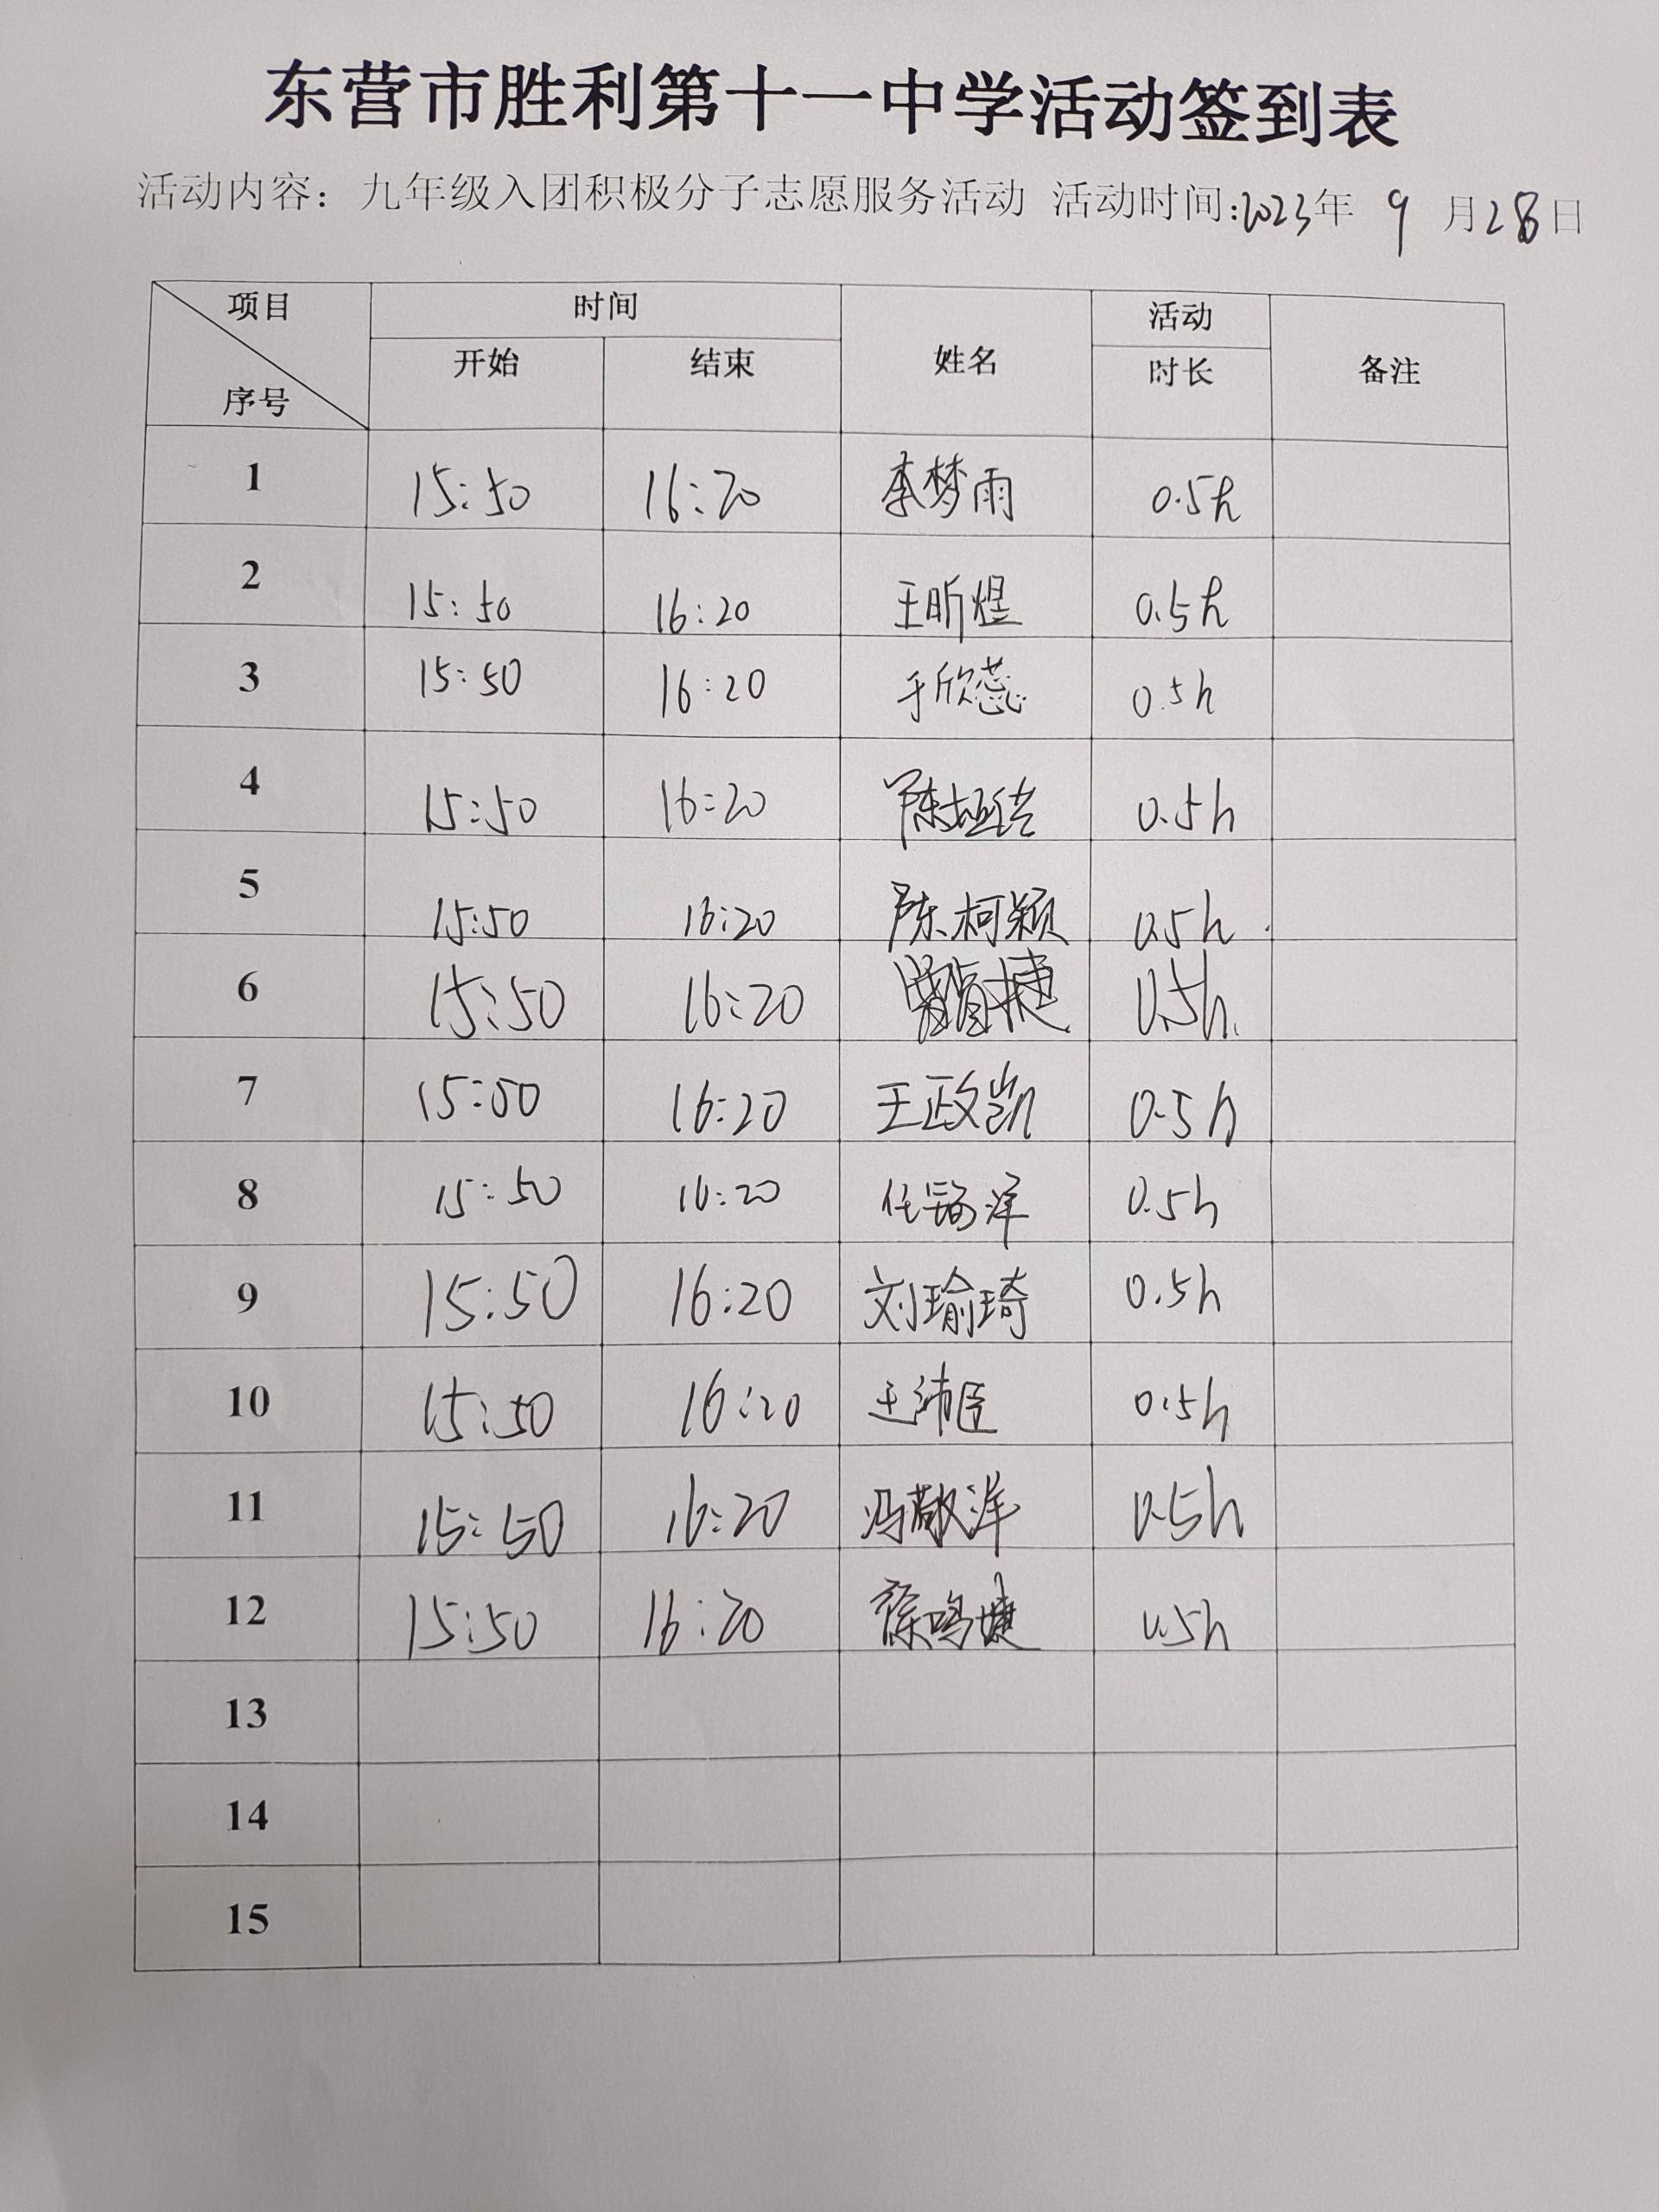 东营市胜利第十一中学活动签到表
活动内容：九年级入团积极分子志愿服务活动 活动时间:2023年 9 月28日
项目 时间 活动
序号 开始 结束 姓名 时长 备注
1 15:50 16:20 李梦雨 0.5h
2 15:50 16:20 王昕煜 0.5h
3 15:50 16:20 于欣蕊 0.5h
4 15:50 16:20 陈垣 0.5h
5 15:50 16:20 陈柯颖 0.5h
6 15:50 16:20 捷 0.5h
7 15:50 16:20 王政凯 0.5h
8 15:50 16:20 任洋 0.5h
9 15:50 16:20 刘瑜琦 0.5h
10 15:50 16:20 王沛臣 0.5h
11 15:50 16:20 冯敬洋 0.5h
12 15:50 16:20 徐鸣婕 0.5h
13
14
15